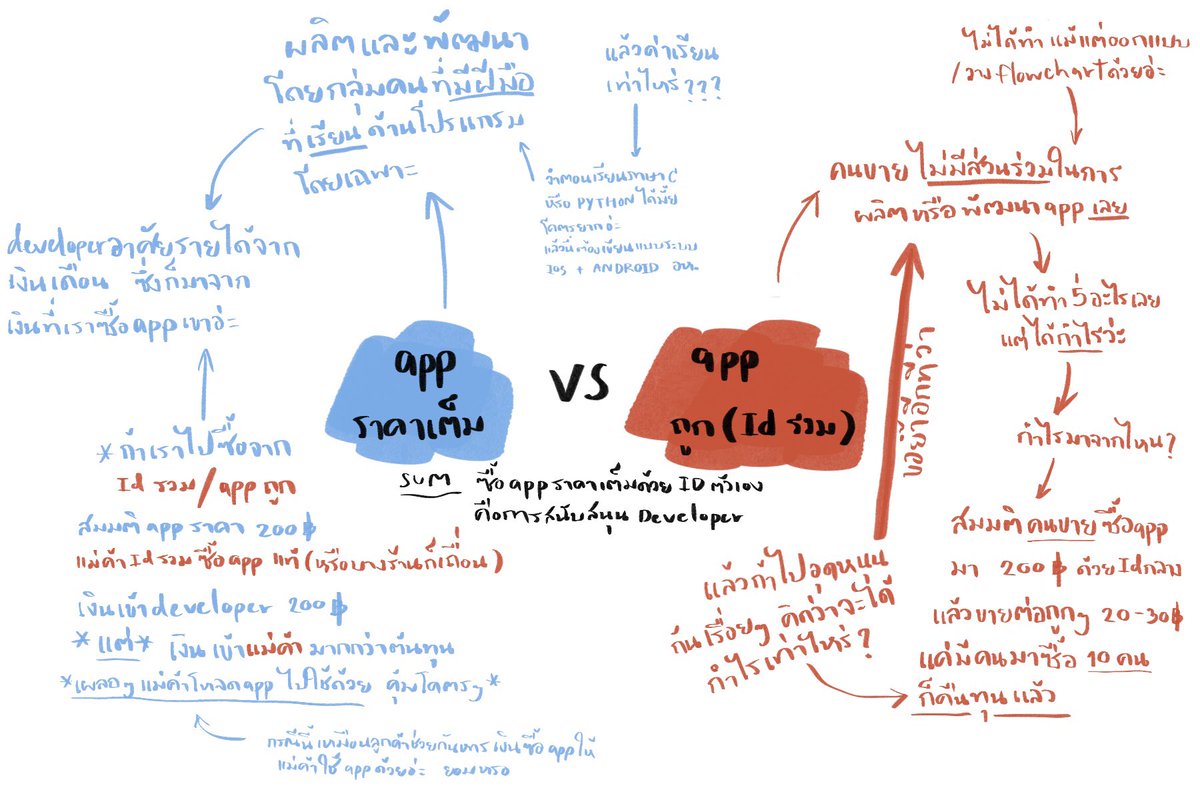 ผลิตและพัฒนา
โดยกลุ่มคนที่มีฝีมือ
ที่เรียนด้านโปรแกรม
โดยเฉพาะ
แล้วค่าเรียน
เท่าไหร่???
จำตอนเรียนภาษา C
หรือ PYTHON ได้มั้ย
โคตรยากอ่ะ
แล้วนี่ต้องเขียนแบบระบบ
IOS + ANDROID อีก
developer อาศัยรายได้จาก
เงินเดือน ซึ่งก็มาจาก
เงินที่เราซื้อ app เขาอ่ะ
*ถ้าเราไปซื้อจาก
Id รวม/app ถูก
สมมติ app ราคา 200฿
แม่ค้า Id รวมซื้อ app แท้ (หรือบางร้านก็เถื่อน)
เงินเข้า developer 200฿
*แต่* เงินเข้าแม่ค้ามากกว่าต้นทุน
*เผลอๆ แม่ค้าโหลด app ไปใช้ด้วย คุ้มโคตรๆ*
กรณีนี้เหมือนลูกค้าช่วยกันหารเงินซื้อ app ให้
แม่ค้าใช้ app ด้วยอ่ะ ยอมหรอ
app
ราคาเต็ม
VS
app
ถูก (Id รวม)
SUM ซื้อ app ราคาเต็มด้วย ID ตัวเอง
คือการสนับสนุน Developer
ไม่ได้ทำ แม้แต่ออกแบบ
/วาง flowchart ด้วยอ่ะ
คนขาย ไม่มีส่วนร่วมในการ
ผลิตหรือพัฒนา app เลย
ไม่ได้ทำ 5 อะไรเลย
แต่ได้กำไรว่ะ
กำไรมาจากไหน?
สมมติ คนขาย ซื้อ app
มา 200฿ ด้วย Id กลาง
แล้วขายต่อถูกๆ 20-30฿
แค่มีคนมาซื้อ 10 คน
ก็คืนทุนแล้ว
แล้วถ้าไปอุดหนุน
กันเรื่อยๆ คิดว่าจะได้
กำไรเท่าไหร่?